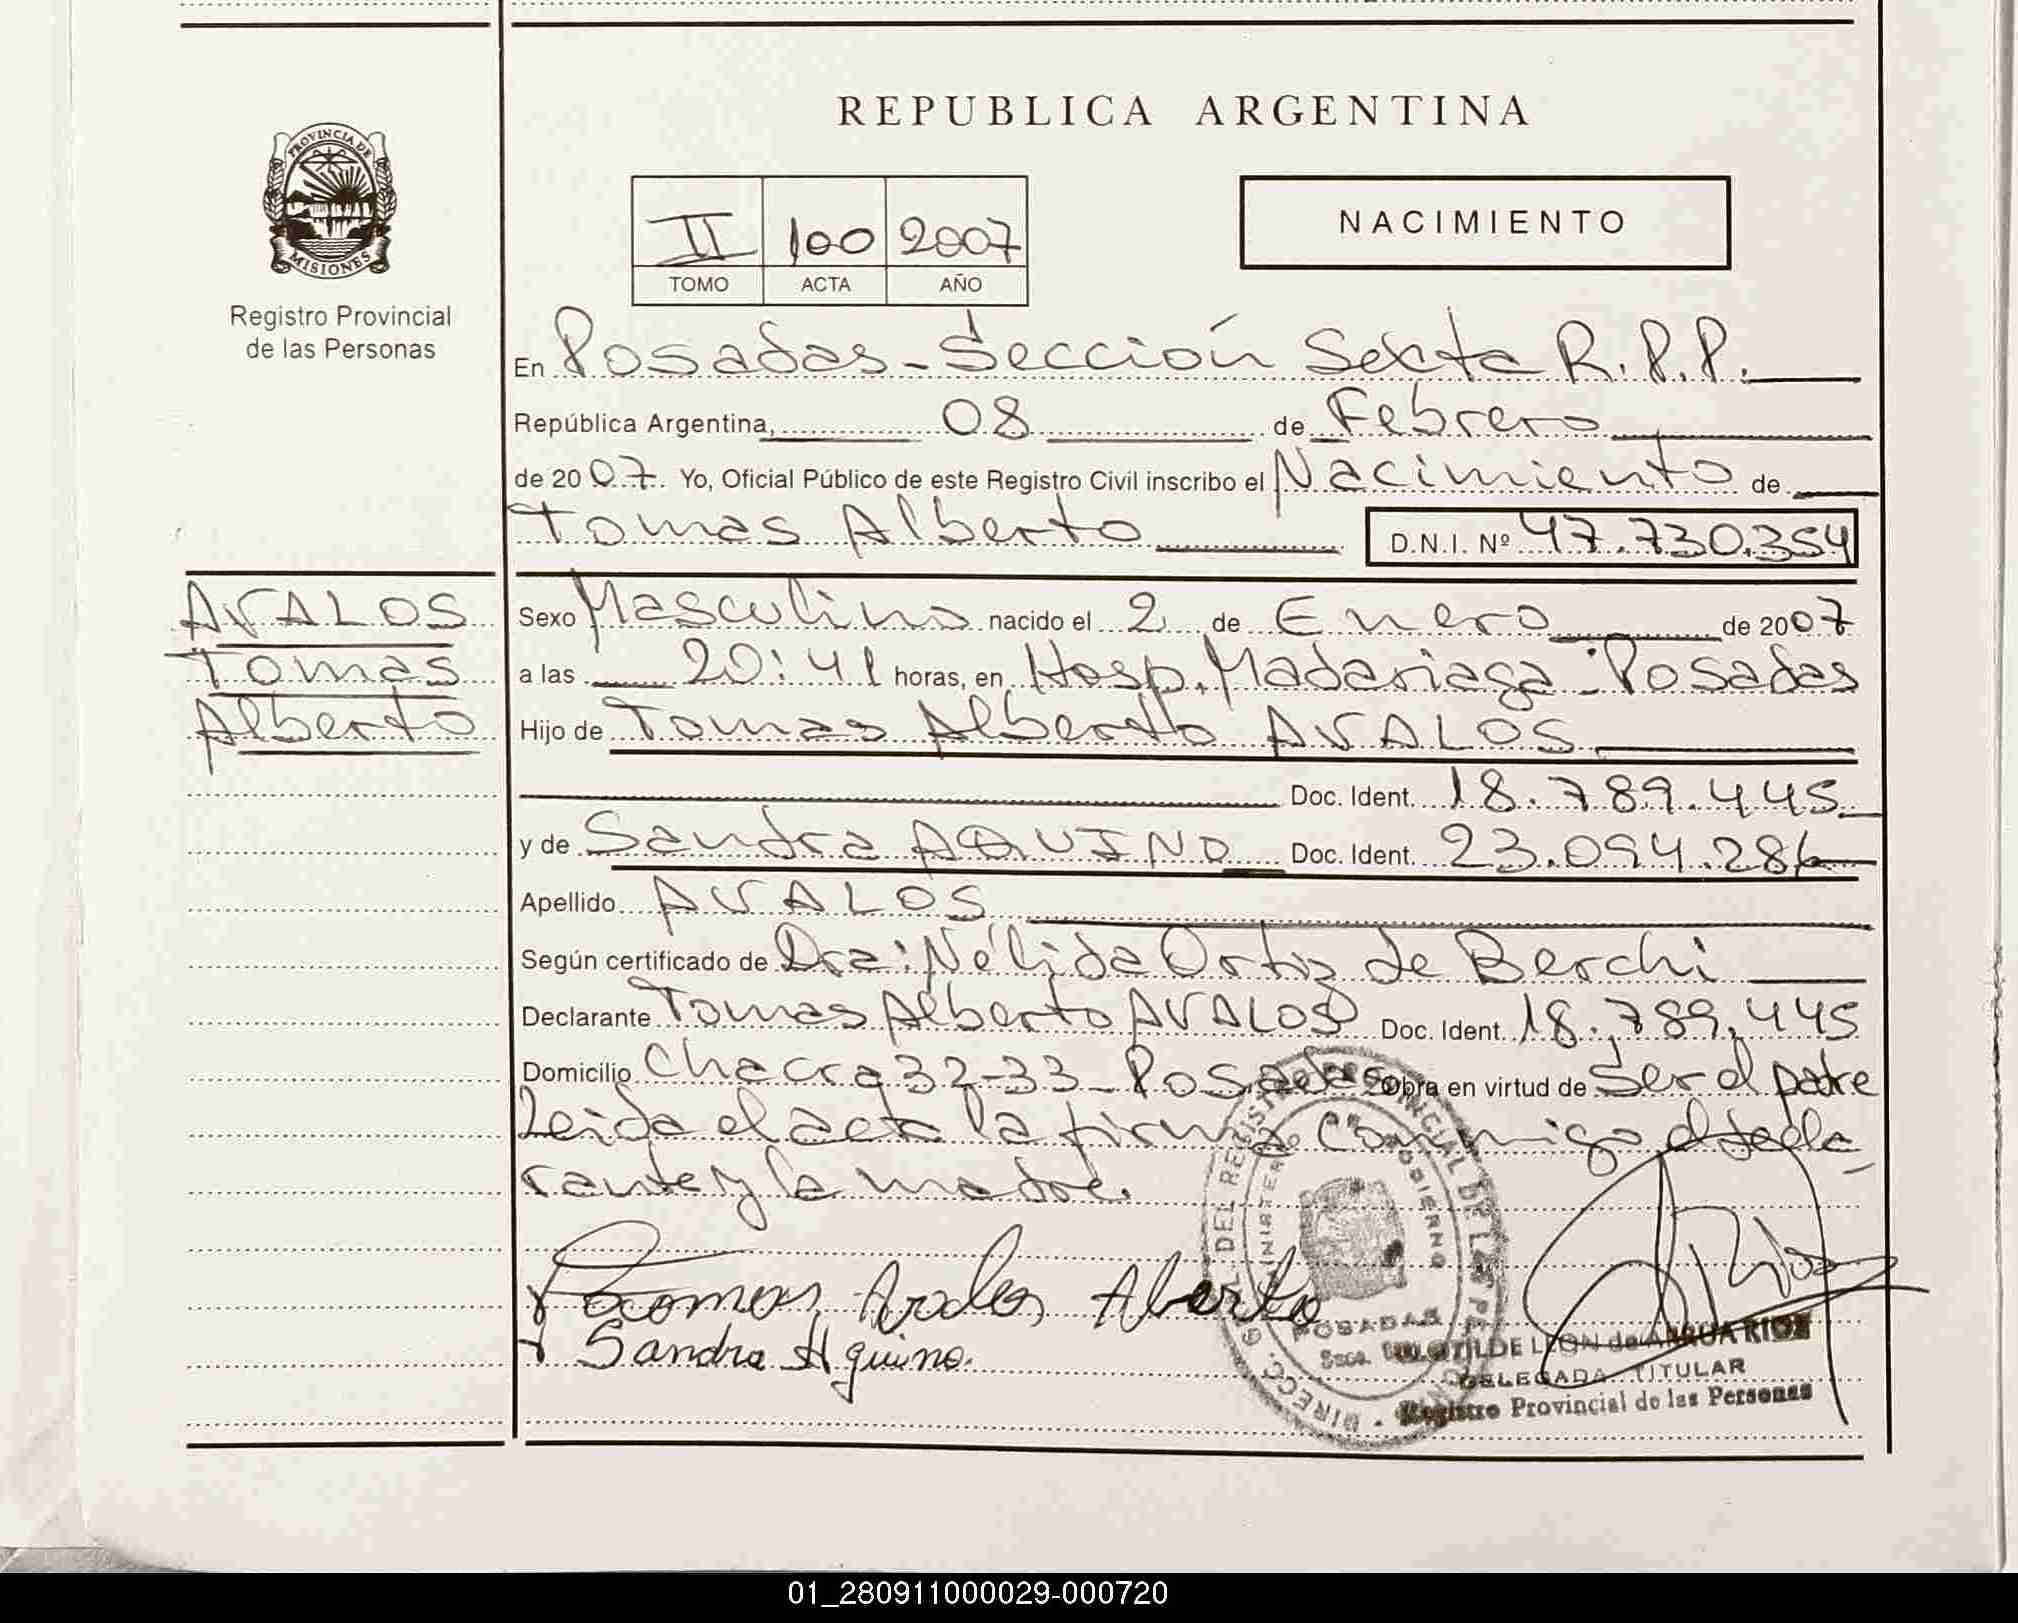 REPUBLICA ARGENTINA
PROVINCIA DE
MISIONES
Registro Provincial
de las Personas
NACIMIENTO
II 100 2007
TOMO ACTA AÑO
En Posadas - Sección Sexta R.P.P.
República Argentina, 08 de Febrero
de 2007. Yo, Oficial Público de este Registro Civil inscribo el Nacimiento de
Tomas Alberto D.N.I. Nº 47.730.354
AVALOS
Tomas
Alberto
Sexo Masculino nacido el 2 de Enero de 2007
a las 20:41 horas, en Hosp. Madariaga - Posadas
Hijo de Tomas Alberto AVALOS
Doc. Ident. 18.789.445
y de Sandra AQUINO Doc. Ident. 23.094.286
Apellido AVALOS
Según certificado de Dra: Nélida Ortiz de Berchi
Declarante Tomas Alberto AVALOS Doc. Ident. 18.789.445
Domicilio Chacra 32-33 - Posadas Obra en virtud de Ser el padre
Leida el acta la firma conmigo el decla
rante y la madre.
Avalos Alberto
Sandra Aquino.
DIRECC. GRAL. DEL REGISTRO PROVINCIAL DE LAS PERSONAS
MINISTERIO DE GOBIERNO
POSADAS
CLOTILDE LEON de RIOS
DELEGADA TITULAR
Registro Provincial de las Personas
01_280911000029-000720